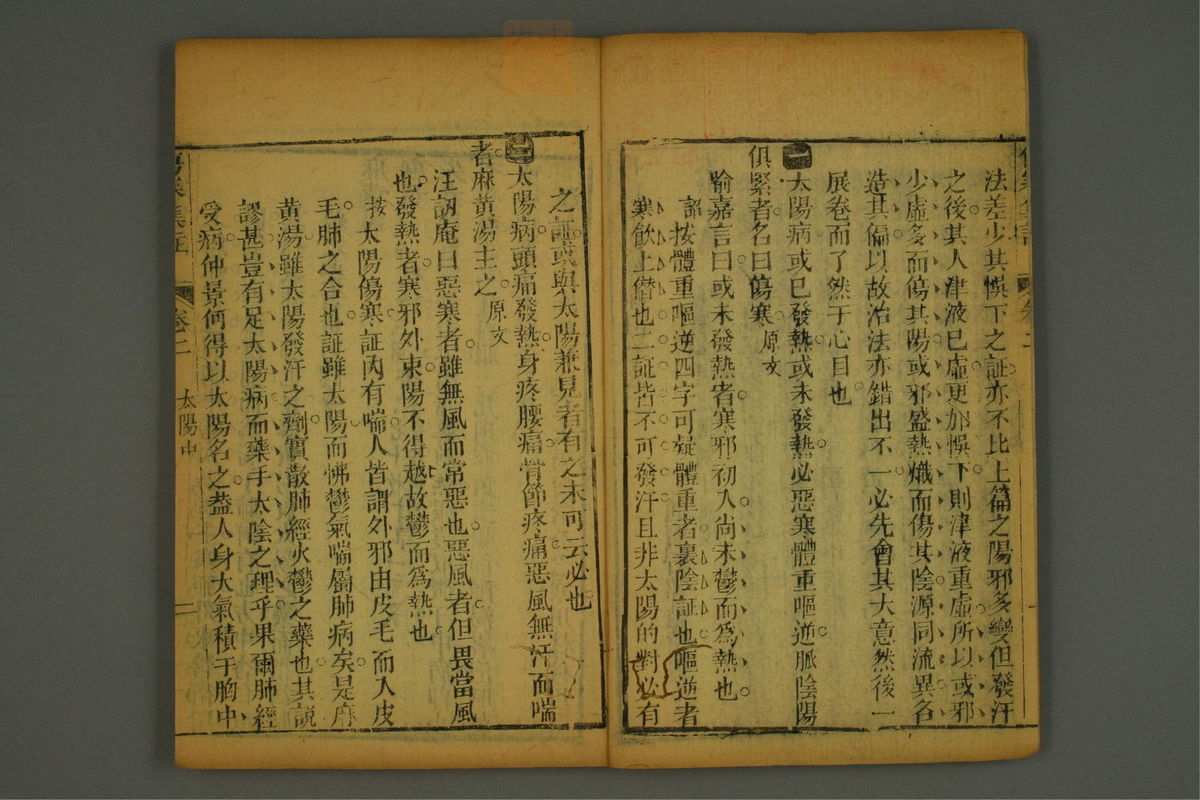 法差少其悞下之証亦不比上篇之陽邪多變但發汗
之後其人津液已虛更加悞下則津液重虛所以或邪
少虛多而傷其陽或邪盛熱熾而傷其陰源同流異各
造其偏以故治法亦錯出不一必先會其大意然後一
展卷而了然于心目也
一
太陽病或已發熱或未發熱必惡寒體重嘔逆脈陰陽
俱緊者名曰傷寒 原文
喻嘉言曰或未發熱者寒邪初入尚未鬱而爲熱也
按體重嘔逆四字可疑體重者裏陰証也嘔逆者
寒飲上僭也二証皆不可發汗且非太陽的對必有
之証或與太陽兼見者有之未可云必也
二
太陽病頭痛發熱身疼腰痛骨節疼痛惡風無汗而喘
者麻黃湯主之 原文
汪訒庵曰惡寒者雖無風而常惡也惡風者但畏當風
也發熱者寒邪外束陽不得越故鬱而爲熱也
按太陽傷寒証內有喘人皆謂外邪由皮毛而入皮
毛肺之合也証雖太陽而怫鬱氣喘屬肺病矣是麻
黃湯雖太陽發汗之劑實散肺經火鬱之藥也其説
謬甚豈有足太陽病而藥手太陰之理乎果爾肺經
受病仲景何得以太陽名之葢人身大氣積于胸中
集註
卷二
太陽中
二